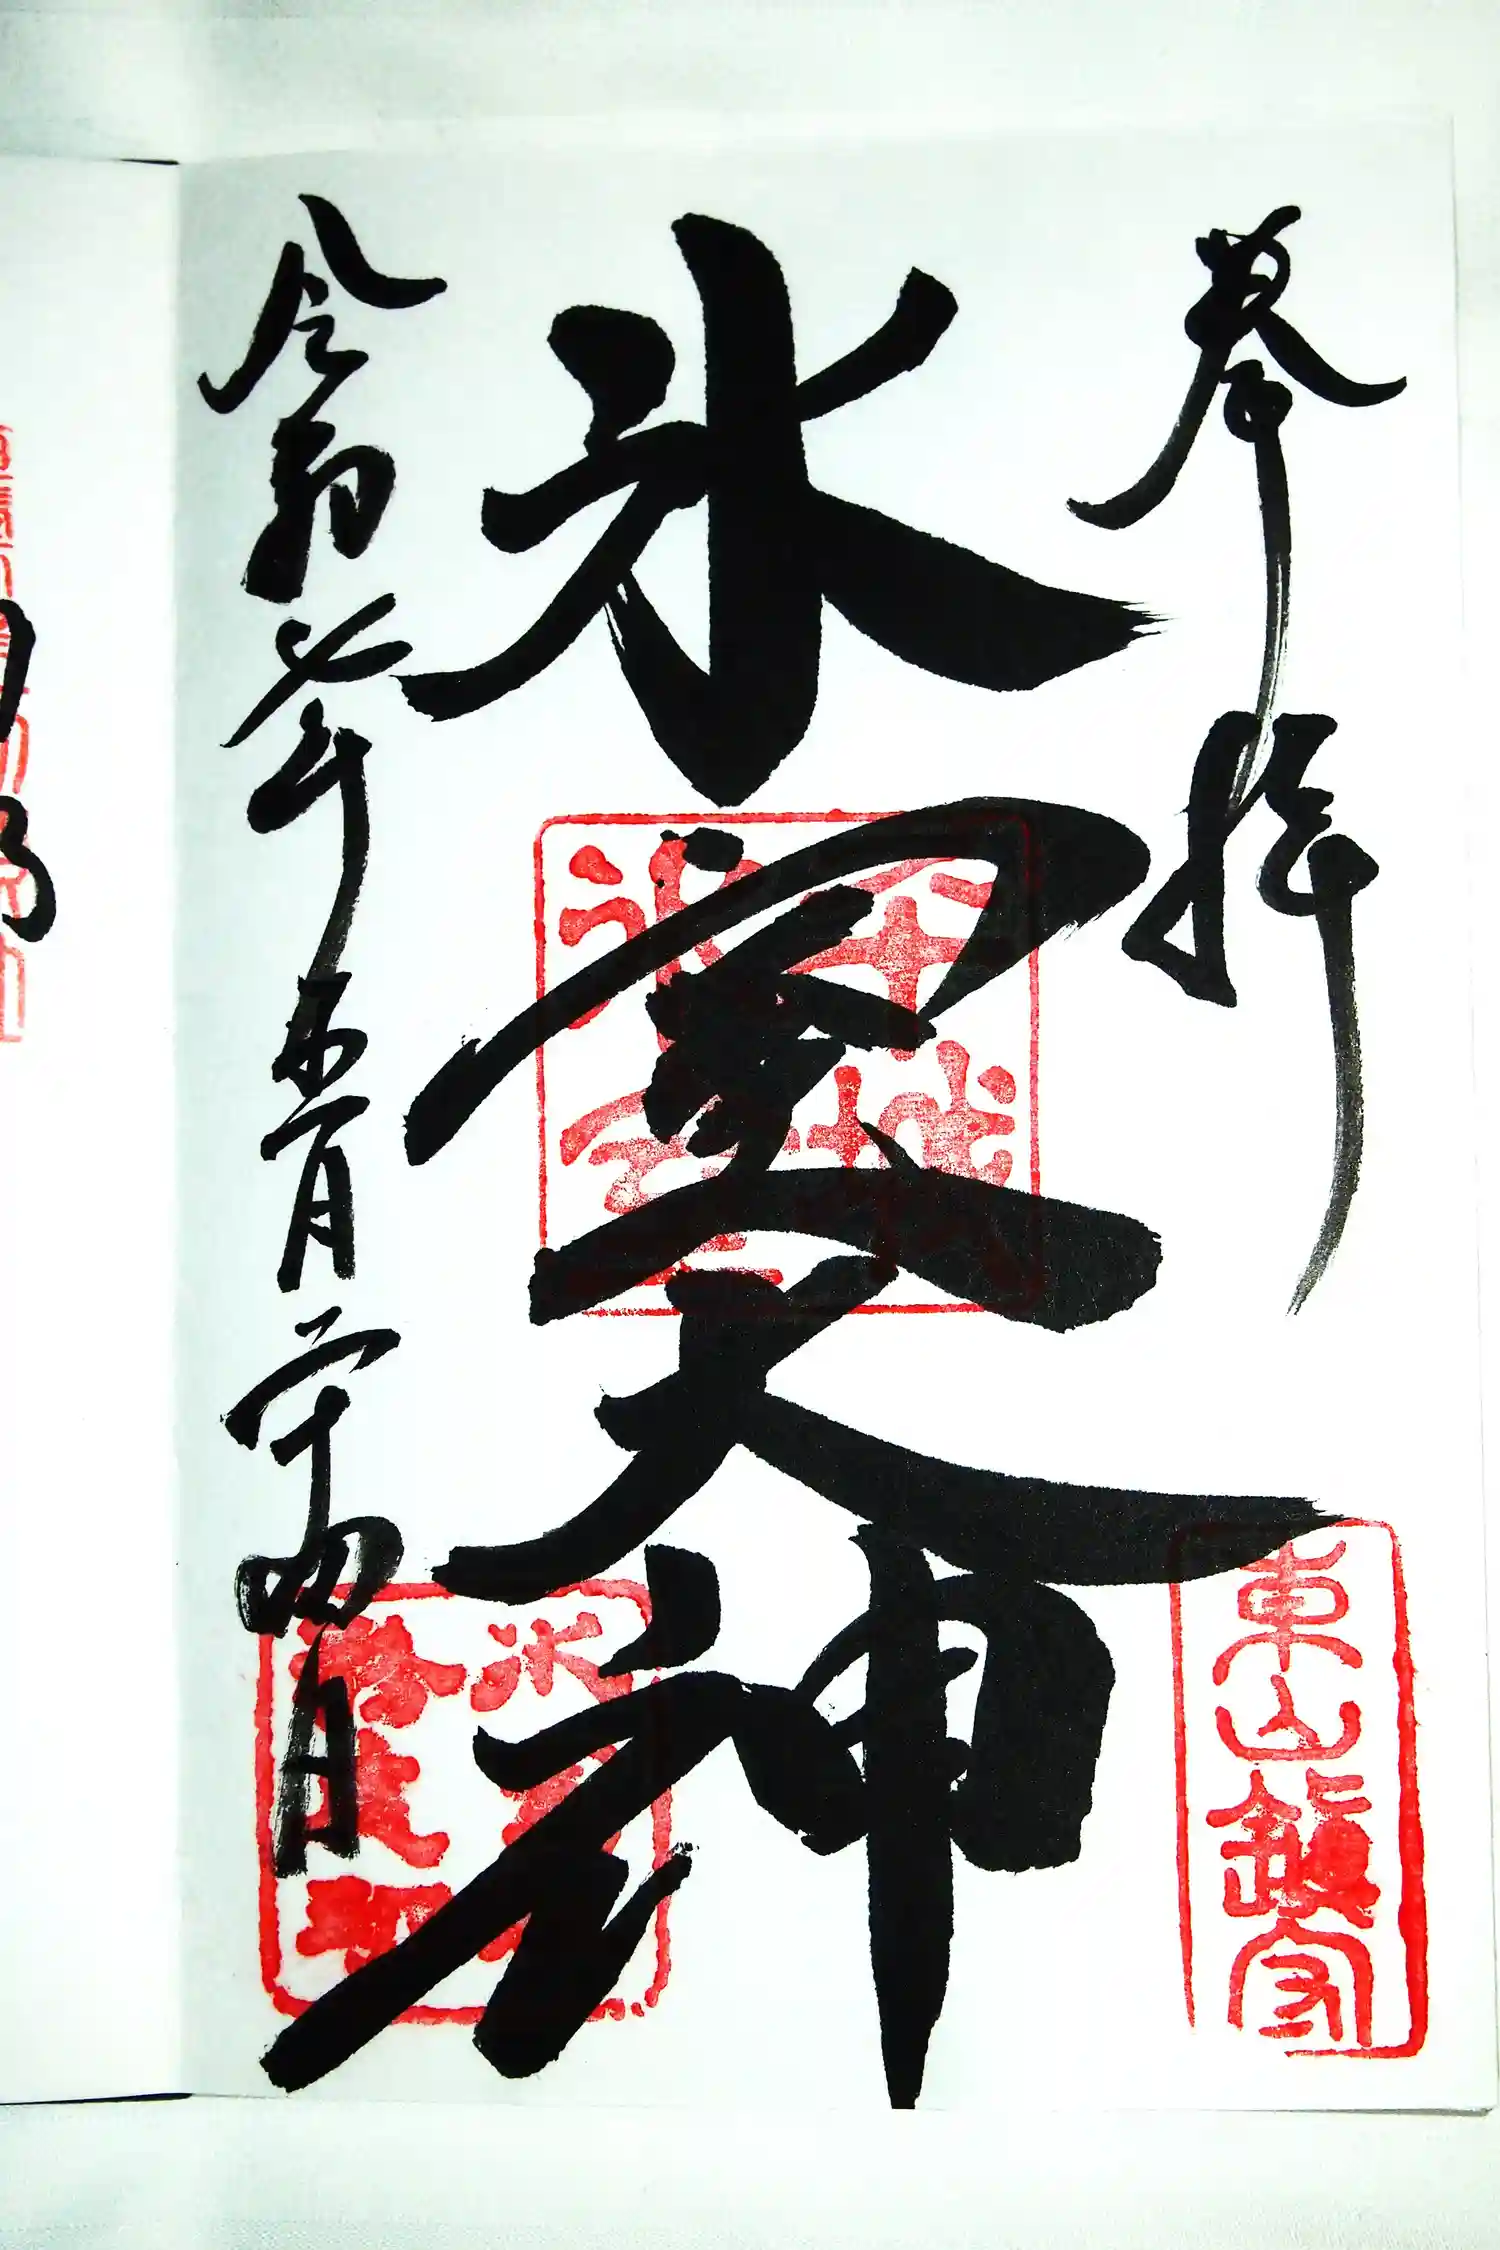 奉拝
氷室大神
令和七年五月二十四日
東山鎮